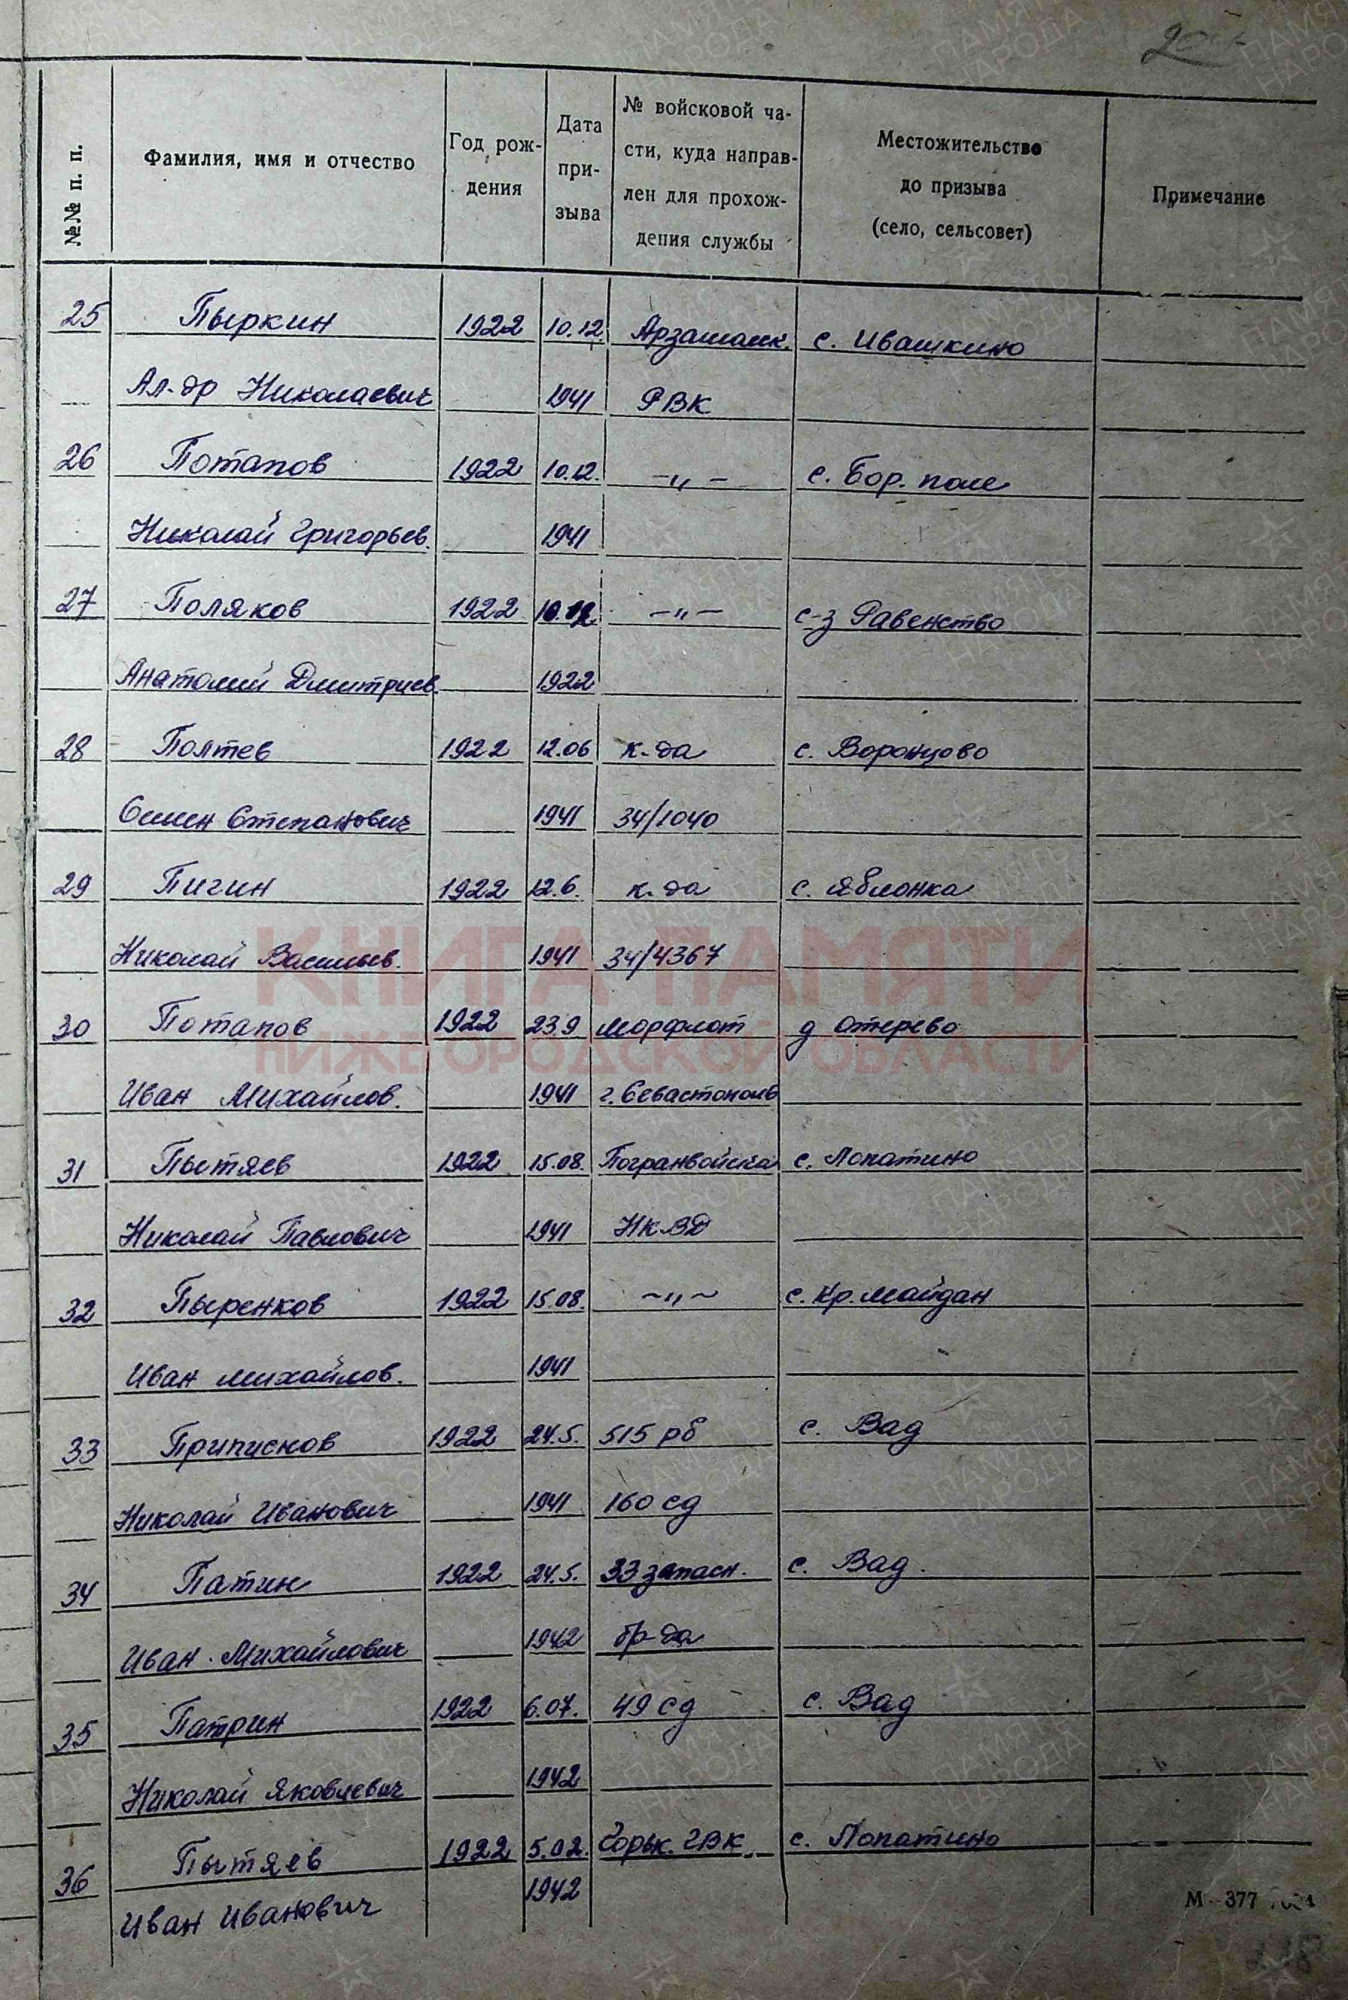 №№ п. п.
Фамилия, имя и отчество
Год рож-
дения
Дата
при-
зыва
№ войсковой ча-
сти, куда направ-
лен для прохож-
дения службы
Местожительство
до призыва
(село, сельсовет)
Примечание
25 Пыркин 1922 10.12. Арзамаск. с. Ивашкино
Ал-др Николаевич 1941 РВК
26 Потапов 1922 10.12. —„— с. Бор. поле
Николай Григорьев. 1941
27 Поляков 1922 10.12 —„— с-з Равенство
Анатолий Дмитриев. 1922
28 Полтев 1922 12.06 к. да с. Воронцово
Семен Степанович 1941 34/1040
29 Пигин 1922 12.6. к. да с. Яблонка
Николай Васильев. 1941 34/4367
КНИГА ПАМЯТИ
30 Потапов 1922 23.9 Морфлот д Отерево
НИЖЕГОРОДСКОЙ ОБЛАСТИ
Иван Михайлов. 1941 г. Севастополь
31 Пытяев 1922 15.08. Погранвойска с. Лопатино
Николай Павлович 1941 НКВД
32 Пыренков 1922 15.08. —„— с. Кр. Майдан
Иван Михайлов. 1941
33 Приписнов 1922 24.5. 515 рб с. Вад
Николай Иванович 1941 160 сд
34 Патин 1922 24.5. 33 запасн. с. Вад.
Иван Михайлович 1942 бр-да
35 Патрин 1922 6.07. 49 сд с. Вад
Николай Яковлевич 1942
36 Пытяев 1922 5.02. Горьк. ГВК с. Лопатино
Иван Иванович 1942
М-377
ПАМЯТЬ
НАРОДА